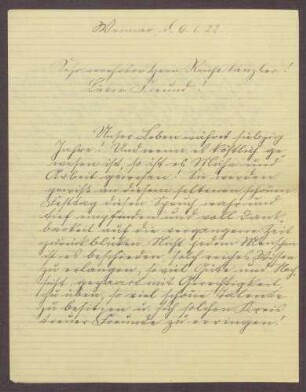 Weimar, d. 6. 6. 22
Sehr verehrter Herr Reichskanzler!
Lieber Freund!
Unser Leben währet siebzig
Jahre! Und wenn es köstlich ge
wesen ist, so ist es Mühe und
Arbeit gewesen! Sie werden
gewiß an diesem seltenen schönen
Festtag diesen Spruch wahr und
tief empfinden und voll Dank-
barkeit auf die vergangene Zeit
zurückblicken. Nicht jedem Menschen
ist es beschieden, solch reiches Wissen
zu erlangen, so viel Güte und Nach
sicht, gepaart mit Gerechtigkeit
zu üben, so viel schöne Talente
zu besitzen u. sich solchen Kreis
treuer Freunde zu erringen!